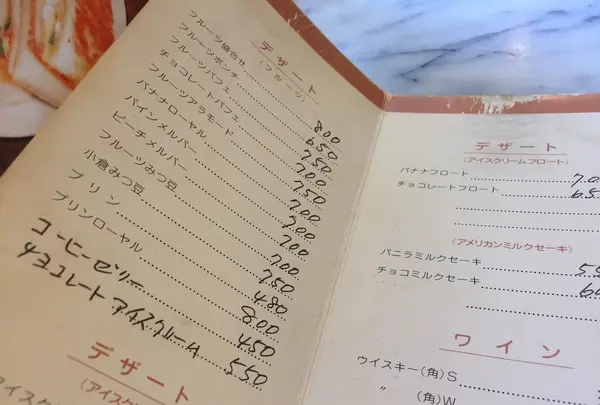 デザート
(フルーツ)
フルーツ盛合せ 800
フルーツポンチ 650
フルーツパフェ 750
チョコレートパフェ 700
フルーツアラモード 750
バナナローヤル 700
パインメルバー 700
ピーチメルバー 700
フルーツみつ豆 700
小倉みつ豆 750
プリン 480
プリンローヤル 800
コーヒーゼリー 450
チョコレートアイスクリーム 550
デザート
デザート
(アイスクリームフロート)
バナナフロート
チョコレートフロート
(アメリカンミルクセーキ)
バニラミルクセーキ
チョコミルクセーキ
ワイン
ウイスキー(角)S
〃 (角)W